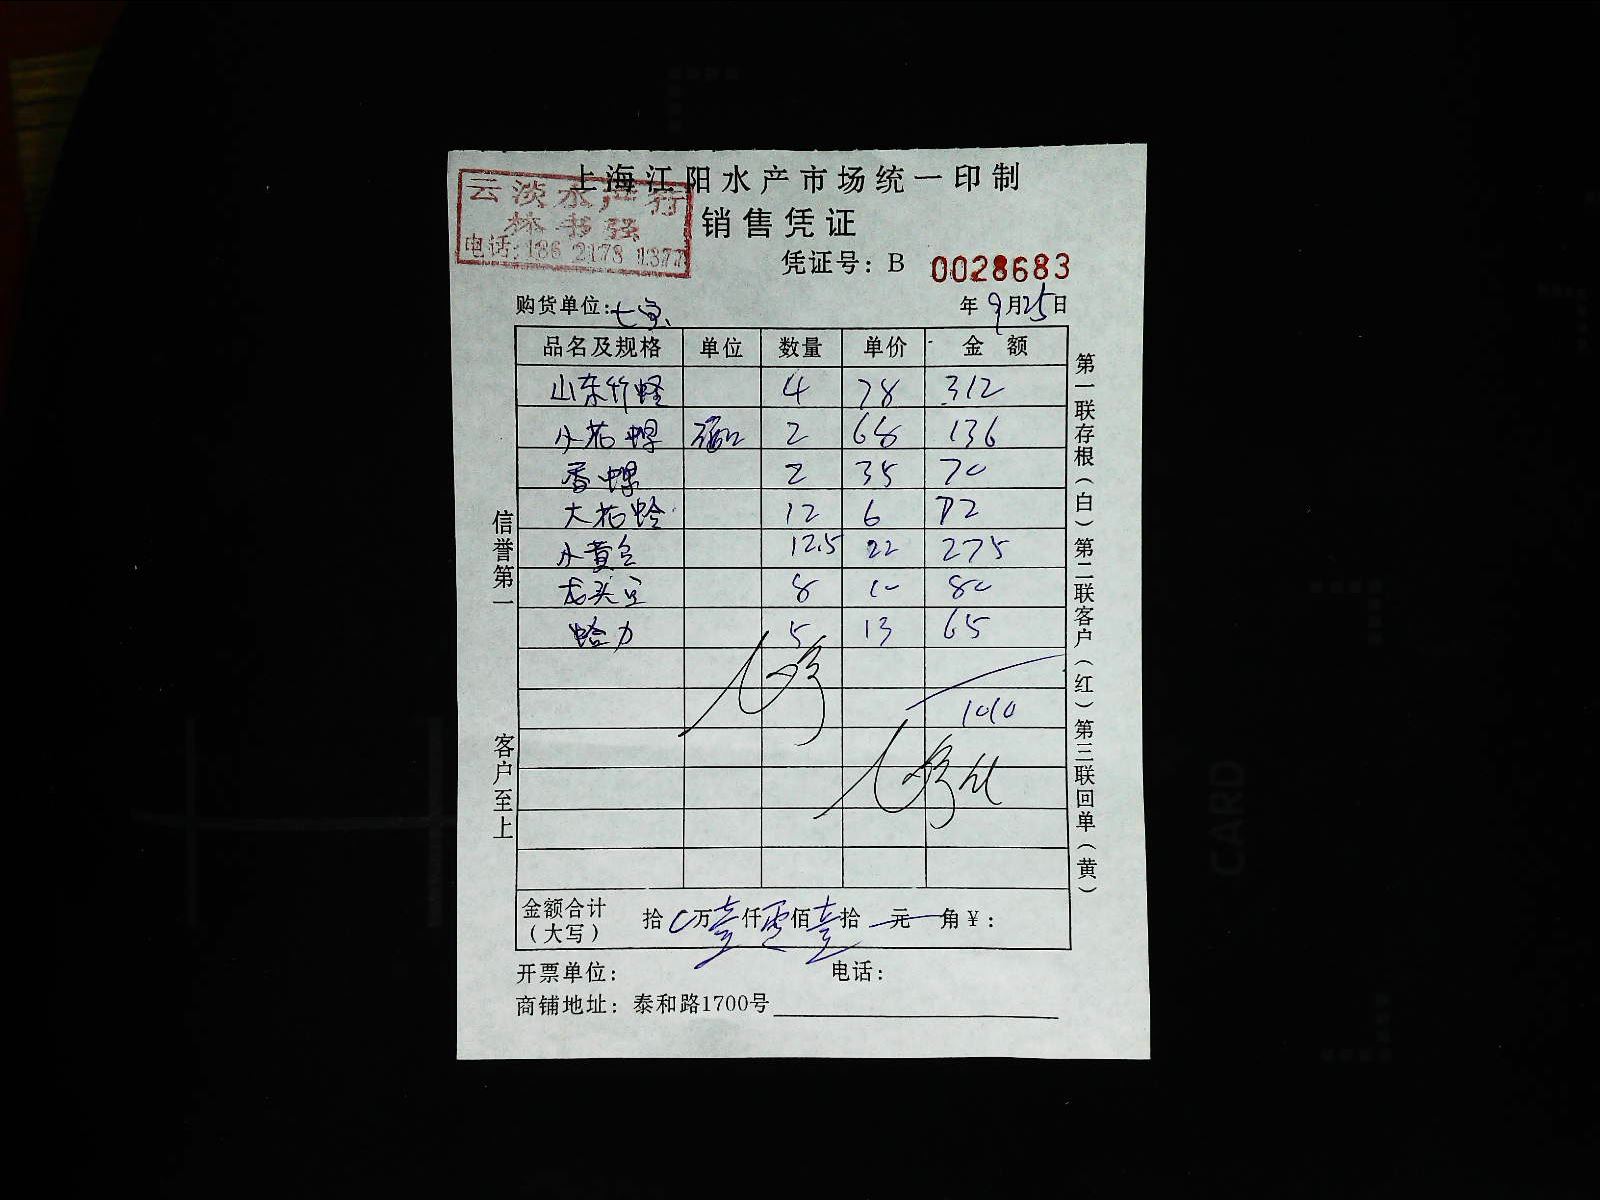 上海江阳水产市场统一印制
云淡水产行
林书强
电话:186 2178 1377
销售凭证
凭证号：B 0028683
购货单位：七宝 年9月25日
品名及规格 单位 数量 单价 金额
山东竹蛏 4 78 312
小花螺 2 68 136
香螺 2 35 70
大花蛤 12 6 72
小黄鱼 12.5 22 275
龙头 8 10 80
蛤力 5 13 65
1010
金额合计（大写） 拾 0万壹仟零佰壹拾 元 角￥：
开票单位： 电话：
商铺地址：泰和路1700号
信誉第一 客户至上
第一联存根（白）第二联客户（红）第三联回单（黄）
CARD